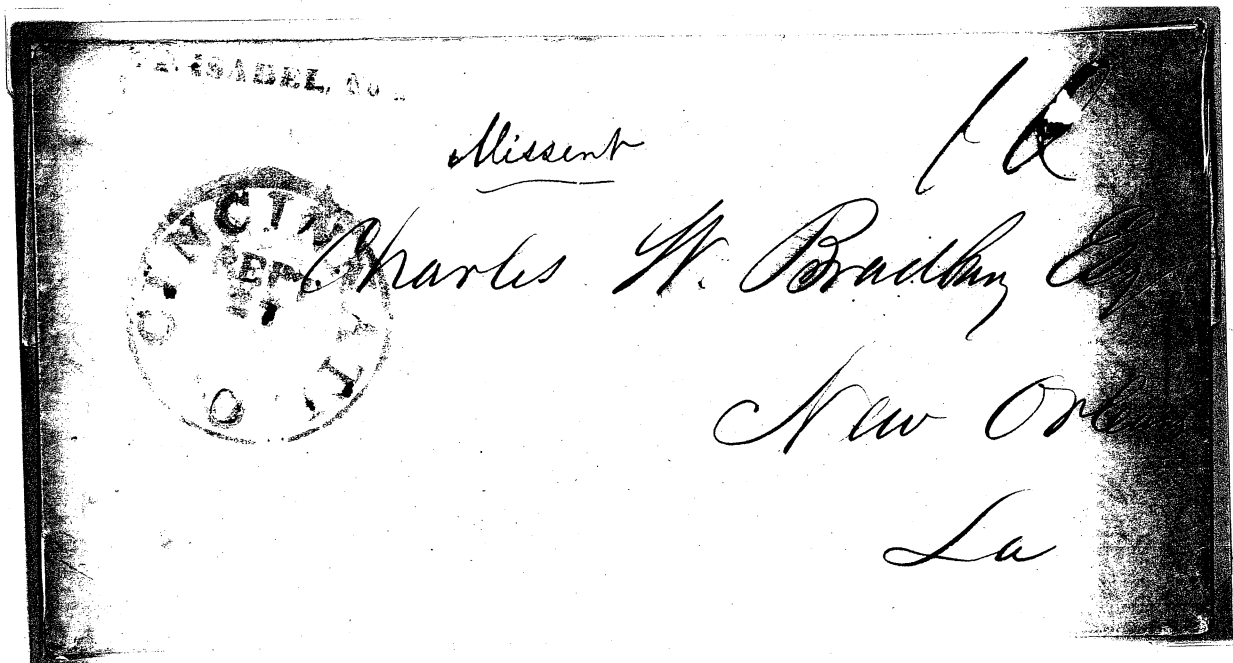 ISABEL,
Missent
CINCINNATI, O
SEP.
27
Charles W. Bradbury Esq.
New Orleans
La